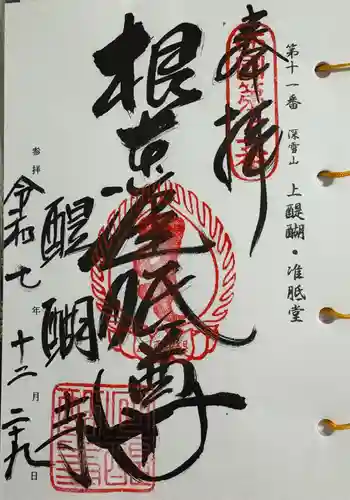 第十一番 深雪山 上醍醐・准胝堂
奉拝
根本准胝尊
醍醐寺
参拝 令和七年十二月二十九日